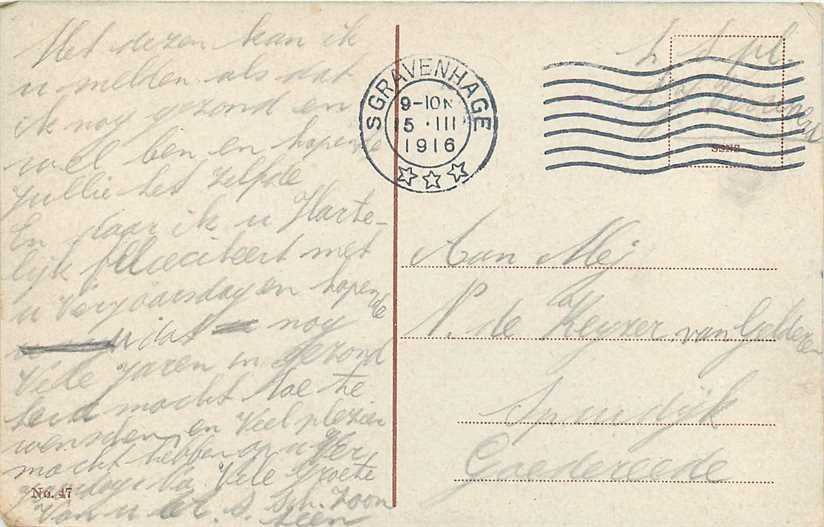 Met dezen kan ik
u melden als dat
ik nog gezond en
wel ben en hopende
Jullie het zelfde
En daar ik u Harte-
lijk feliciteert met
u Verjaarsdag en hopende
u dat nog
Vele Jaren in gezond
mocht toe te
wenschen en Veel plezier
mocht hebben op u Ver
Vele Groete
Van u
Leen
No. 47
SGRAVENHAGE
9-10N
15 · III
1916
Aan Mej
N. de Keyzer van Gelder
Spuidijk
Goedereede